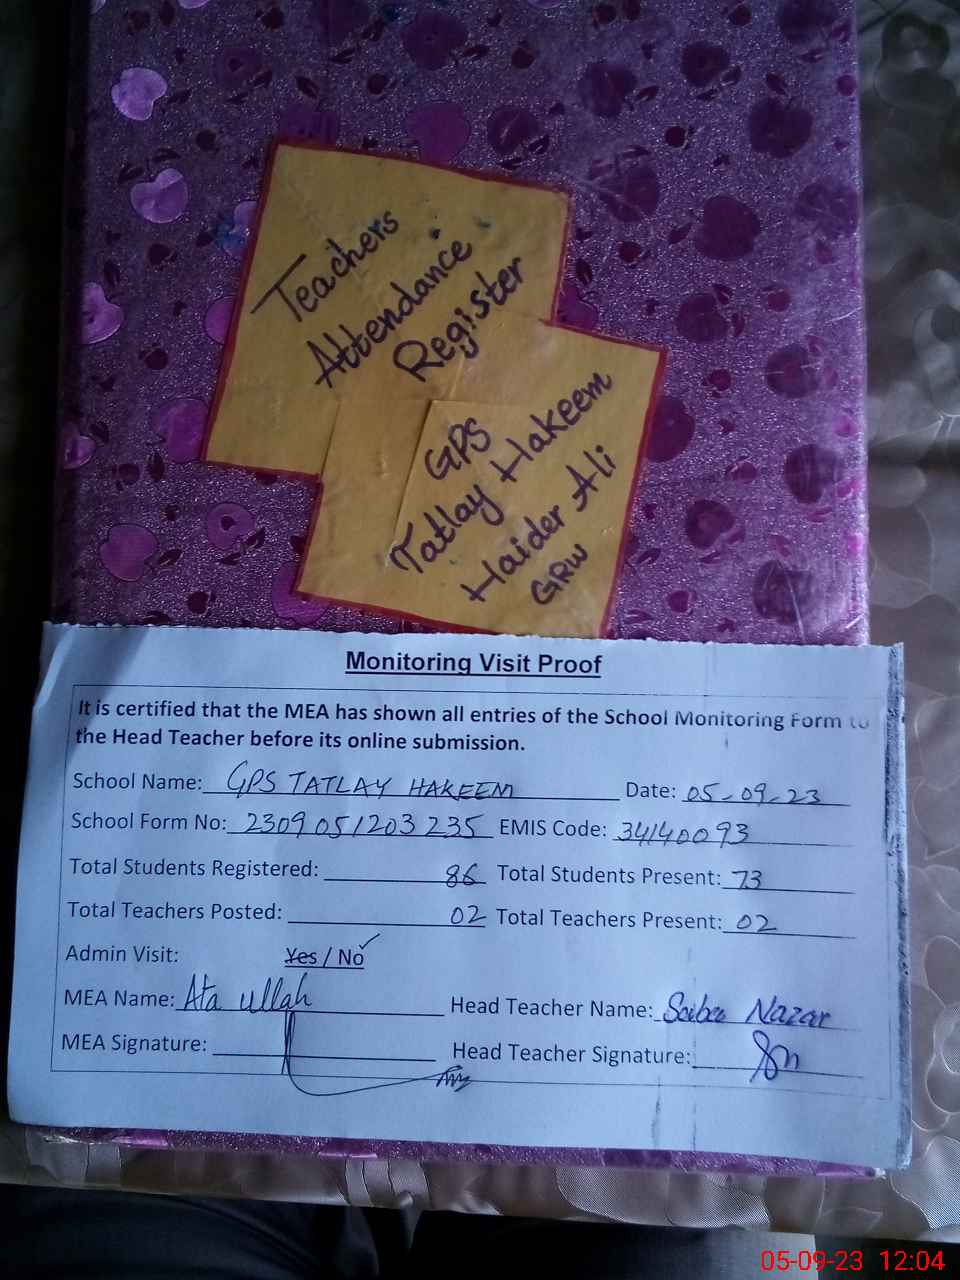 Teachers
Attendance
Register
GPS
Tatlay Hakeem
Haider Ali
GRW
Monitoring Visit Proof
It is certified that the MEA has shown all entries of the School Monitoring Form to
the Head Teacher before its online submission.
School Name: GPS TATLAY HAKEEM Date: 05-09-23
School Form No: 2309051203235 EMIS Code: 34140093
Total Students Registered: 86 Total Students Present: 73
Total Teachers Posted: 02 Total Teachers Present: 02
Admin Visit: Yes / No ✓
MEA Name: Ata ullah Head Teacher Name: Nazar
MEA Signature: Head Teacher Signature:
05-09-23 12:04